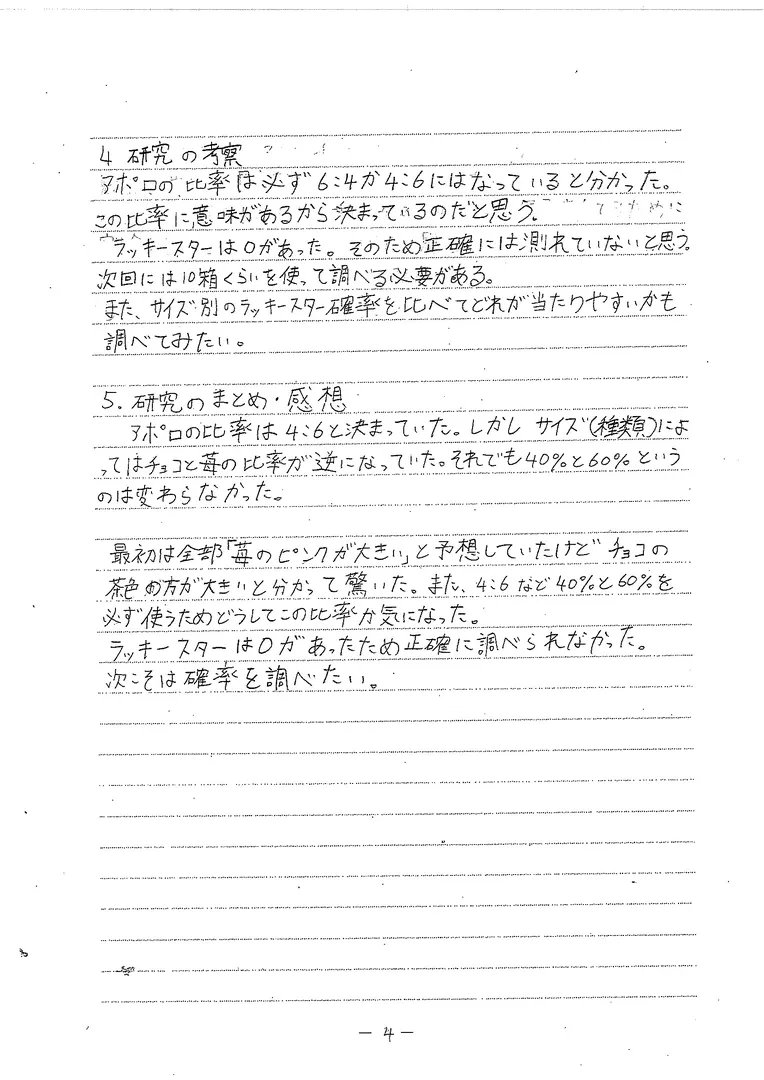 4 研究の考察
アポロの比率は必ず6:4か4:6にはなっていると分かった。
この比率に意味があるから決まっているのだと思う。
ラッキースターは0があった。そのため正確には測れていないと思う。
次回には10箱くらいを使って調べる必要がある。
また、サイズ別のラッキースター確率を比べてどれが当たりやすいかも
調べてみたい。
5. 研究のまとめ・感想
アポロの比率は4:6と決まっていた。しかしサイズ(種類)によ
ってはチョコと苺の比率が逆になっていた。それでも40%と60%という
のは変わらなかった。
最初は全部「苺のピンクが大きい」と予想していたけどチョコの
茶色の方が大きいと分かって驚いた。また、4:6など40%と60%を
必ず使うためどうしてこの比率か気になった。
ラッキースターは0があったため正確に調べられなかった。
次こそは確率を調べたい。
— 4 —